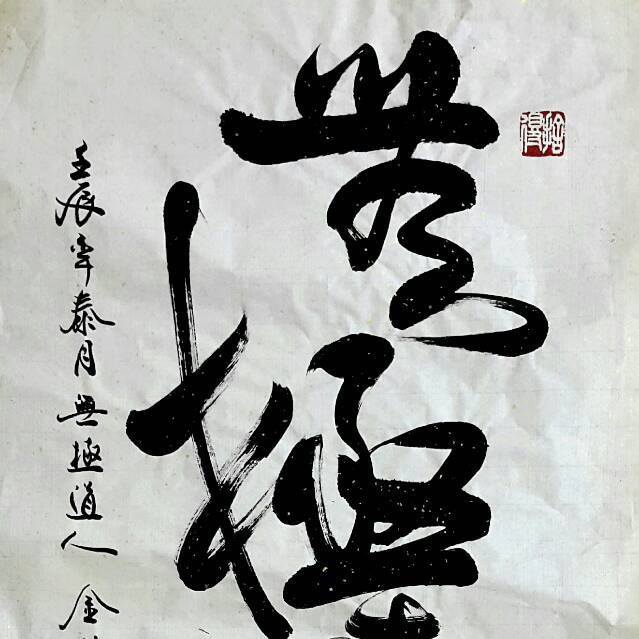 無極
壬辰年泰月無極道人金